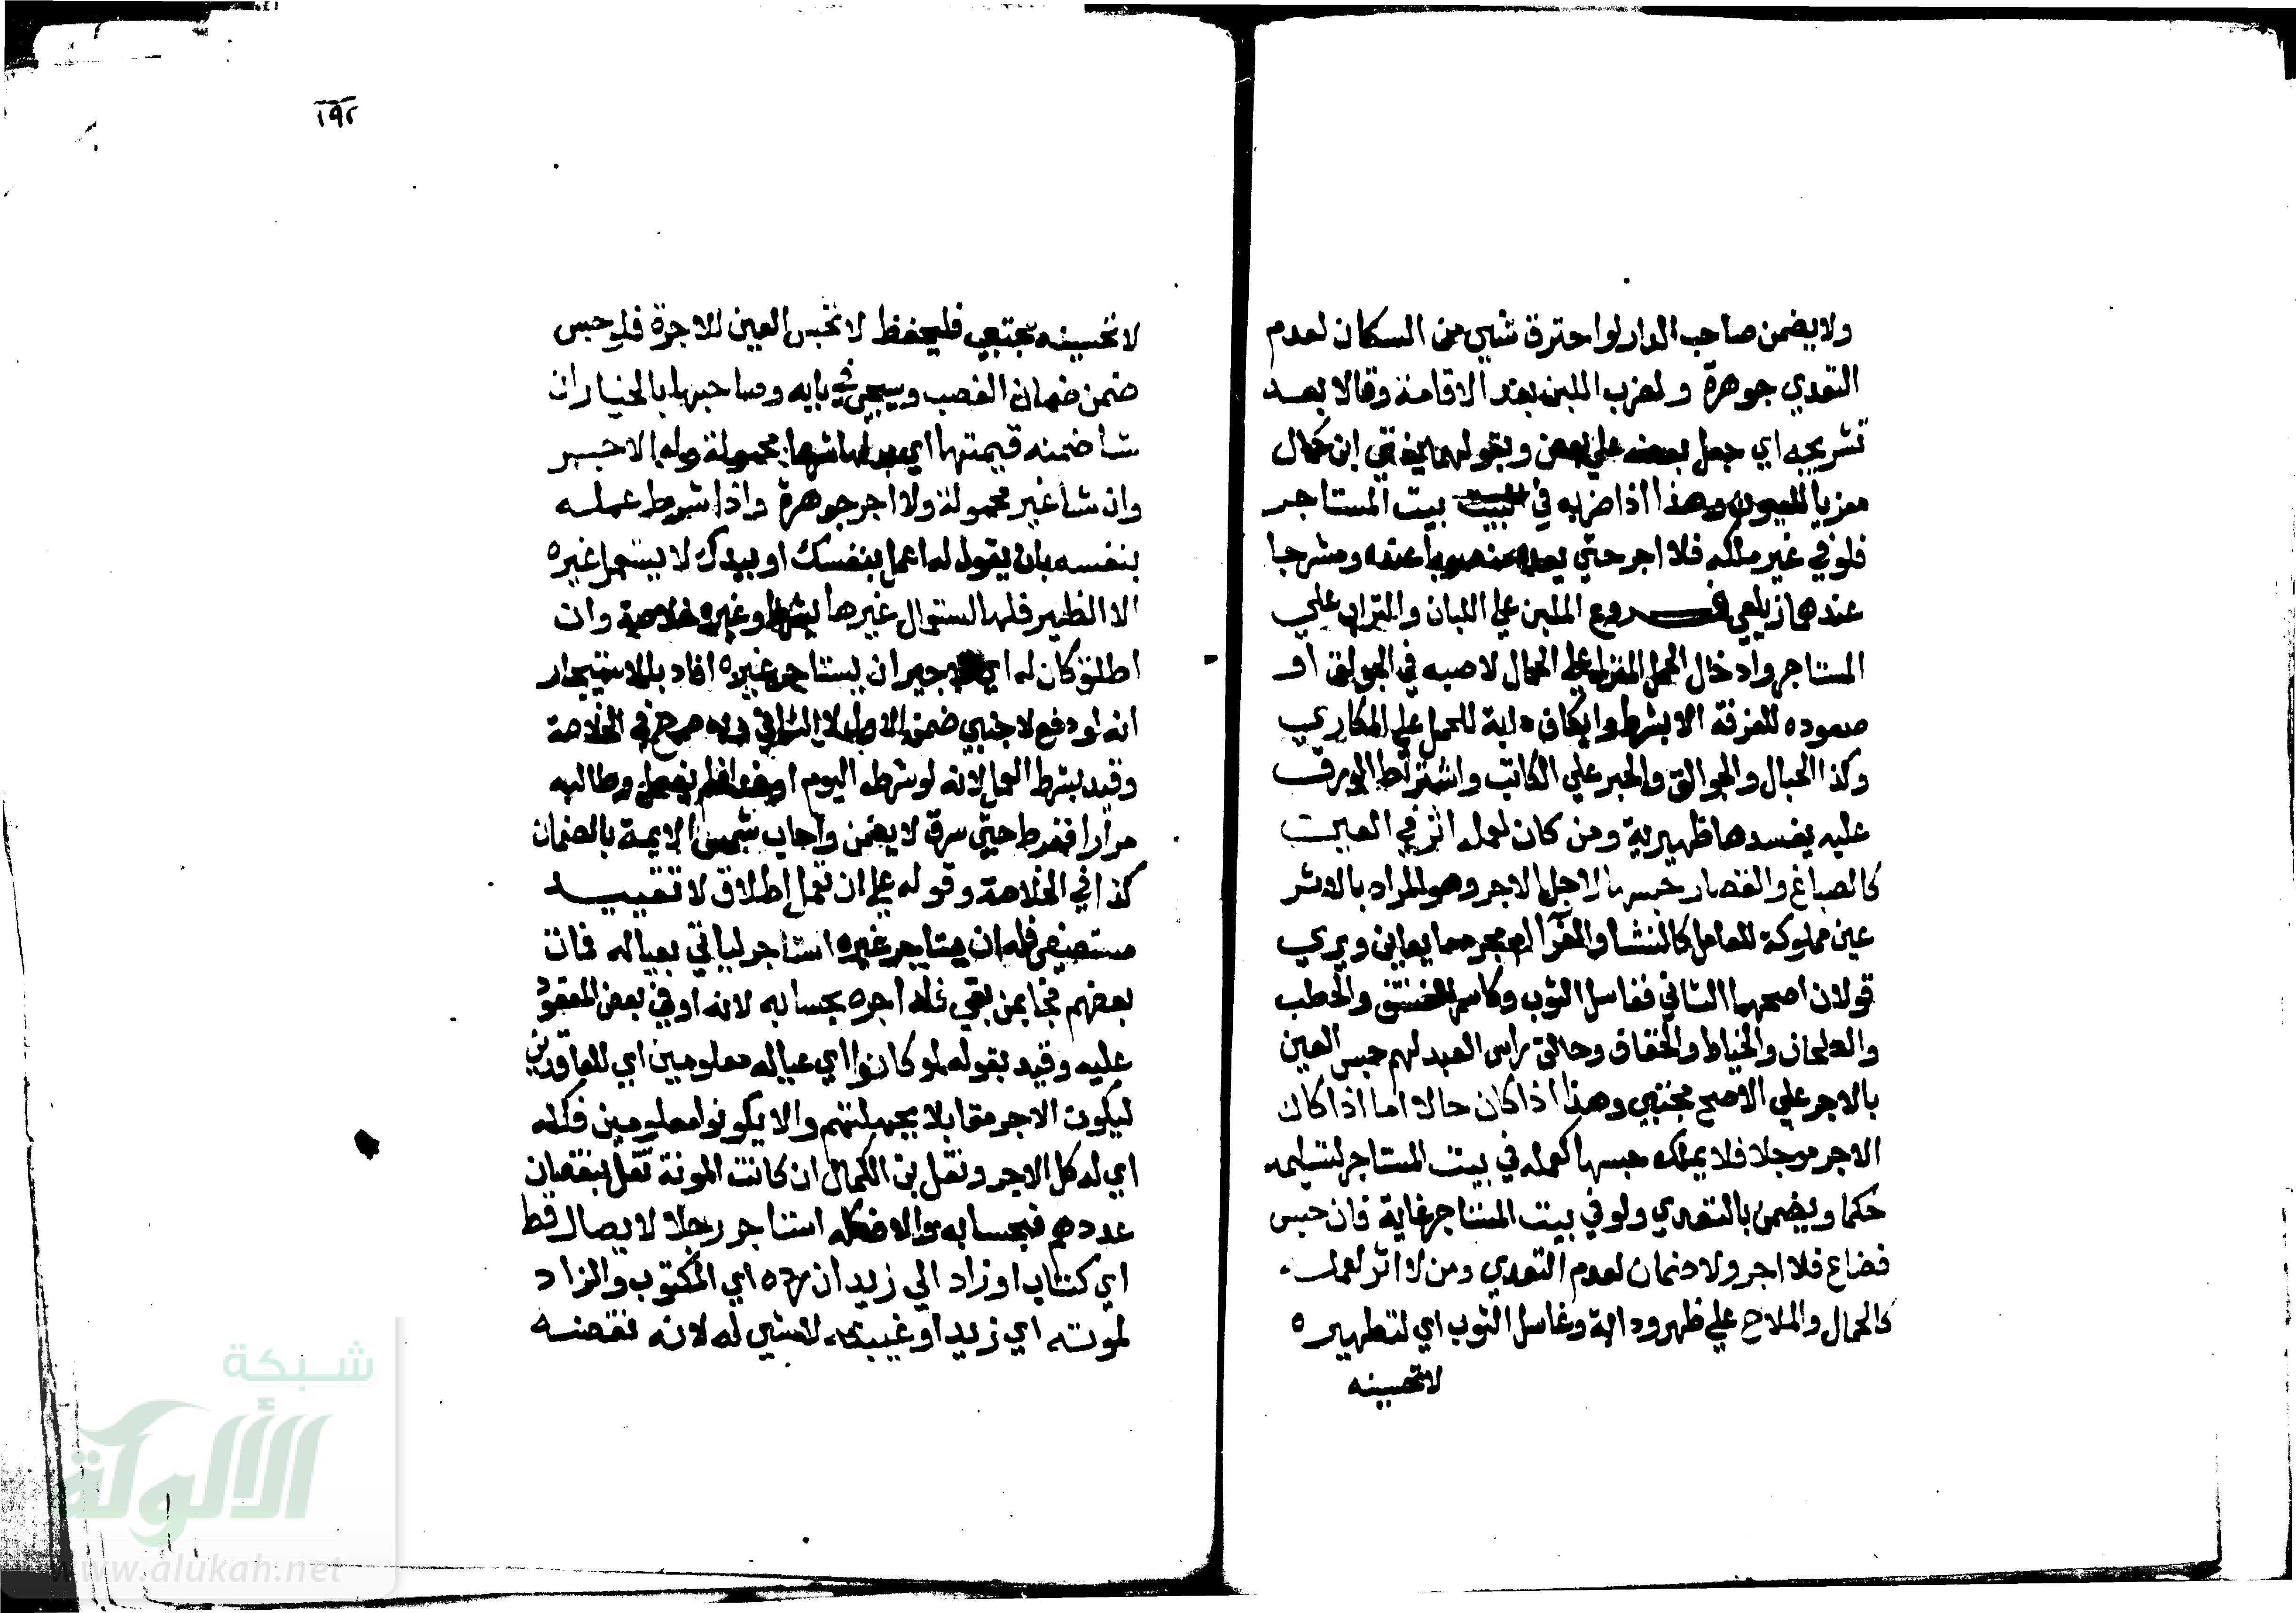 ولا يضمن صاحب الدار لو احترق شيي من السكان لعدم
التعدي جوهرة ولضرب اللبن بعد الاقامة وقالا بعد
تشريجه اي جعل بعضه علي بعض وبقولهما يفتي ابن كمال
معزيا للعيون وهذا اذا ضربه في بيت المستاجر
فلو في غير ملكه فلا اجر حتي يعده منصوبا عنده ومشرجا
عندهما زيلعي فروع الملبن علي اللبان والتراب علي
المستاجر وادخال الحمل المنزل علي الحمال لا صبه في الجوالق او
صعوده للغرفة الا بشرط وايكاف دابة للحمل علي المكاري
وكذا الحبال والجوالق والحبر علي الكاتب واشتراط الورق
عليه يفسدها ظهيرية ومن كان لعمله اثر في العين
كالصباغ والقصار حبسها لاجل الاجر وهو المراد بالاثر
عين مملوكة للعامل كالنشا والغرا ام مجرد ما يعاين ويري
قولان اصحهما الثاني فغاسل الثوب وكاسر الفستق والحطب
والطحان والخياط والخفاف وحالق راس العبد لهم حبس العين
بالاجر علي الاصح مجتبي وهذا اذا كان حالا اما اذا كان
الاجر موجلا فلا يملك حبسها كعمله في بيت المستاجر لتسليمه
حكما ويضمن بالتعدي ولو في بيت المستاجر غاية فان حبس
فضاع فلا اجر ولا ضمان لعدم التعدي ومن لا اثر لعمله
كالحمال والملاح علي ظهر ودابة وغاسل الثوب اي لتطهيره
لا تحسينه
١٩٢
لا تحسينه مجتبي فليحفظ لا تحبس العين للاجرة فلو حبس
ضمن ضمان الغصب وسيجي في بابه وصاحبها بالخيار ان
شا ضمنه قيمتها اي بدلها شرعا محمولة وله الاجر
وان شا غير محمولة ولا اجر جوهرة واذا شرط عمله
بنفسه بان يقول له اعمل بنفسك او بيدك لا يستعمل غيره
الا الظير فلها استعمال غيرها بشرط وغيره خلاصة وان
اطلق كان له اي للاجير ان يستاجر غيره افاد بالاستيجار
انه لو دفع لاجنبي ضمن الاول لا الثاني وبه صرح في الخلاصة
وقيد بشرط العمل لانه لو شرطه اليوم او غدا فلم يفعل وطالبه
مرارا ففرط حتي سرق لا يضمن واجاب شمس الايمة بالضمان
كذا في الخلاصة وقوله علي ان تعمل اطلاق لا تقييد
مستصفي فله ان يستاجر غيره استاجر لياتي بعياله فمات
بعضهم فجا بمن بقي فله اجره بحسابه لانه اوفي بعض المعقود
عليه وقيد بقوله لو كانوا اي عياله معلومين اي للعاقدين
ليكون الاجر مقابلا بجملتهم والا يكونوا معلومين فكله
اي له كل الاجر ونقل بن الكمال ان كانت المونة تقل بنقصان
عددهم فبحسابه والا فكله استاجر رجلا لايصال قط
اي كتاب او زاد الي زيد ان رده اي المكتوب والزاد
لموته اي زيد او غيبته لا شيي له لانه نقضه
شبكة
الألوكة
www.alukah.net